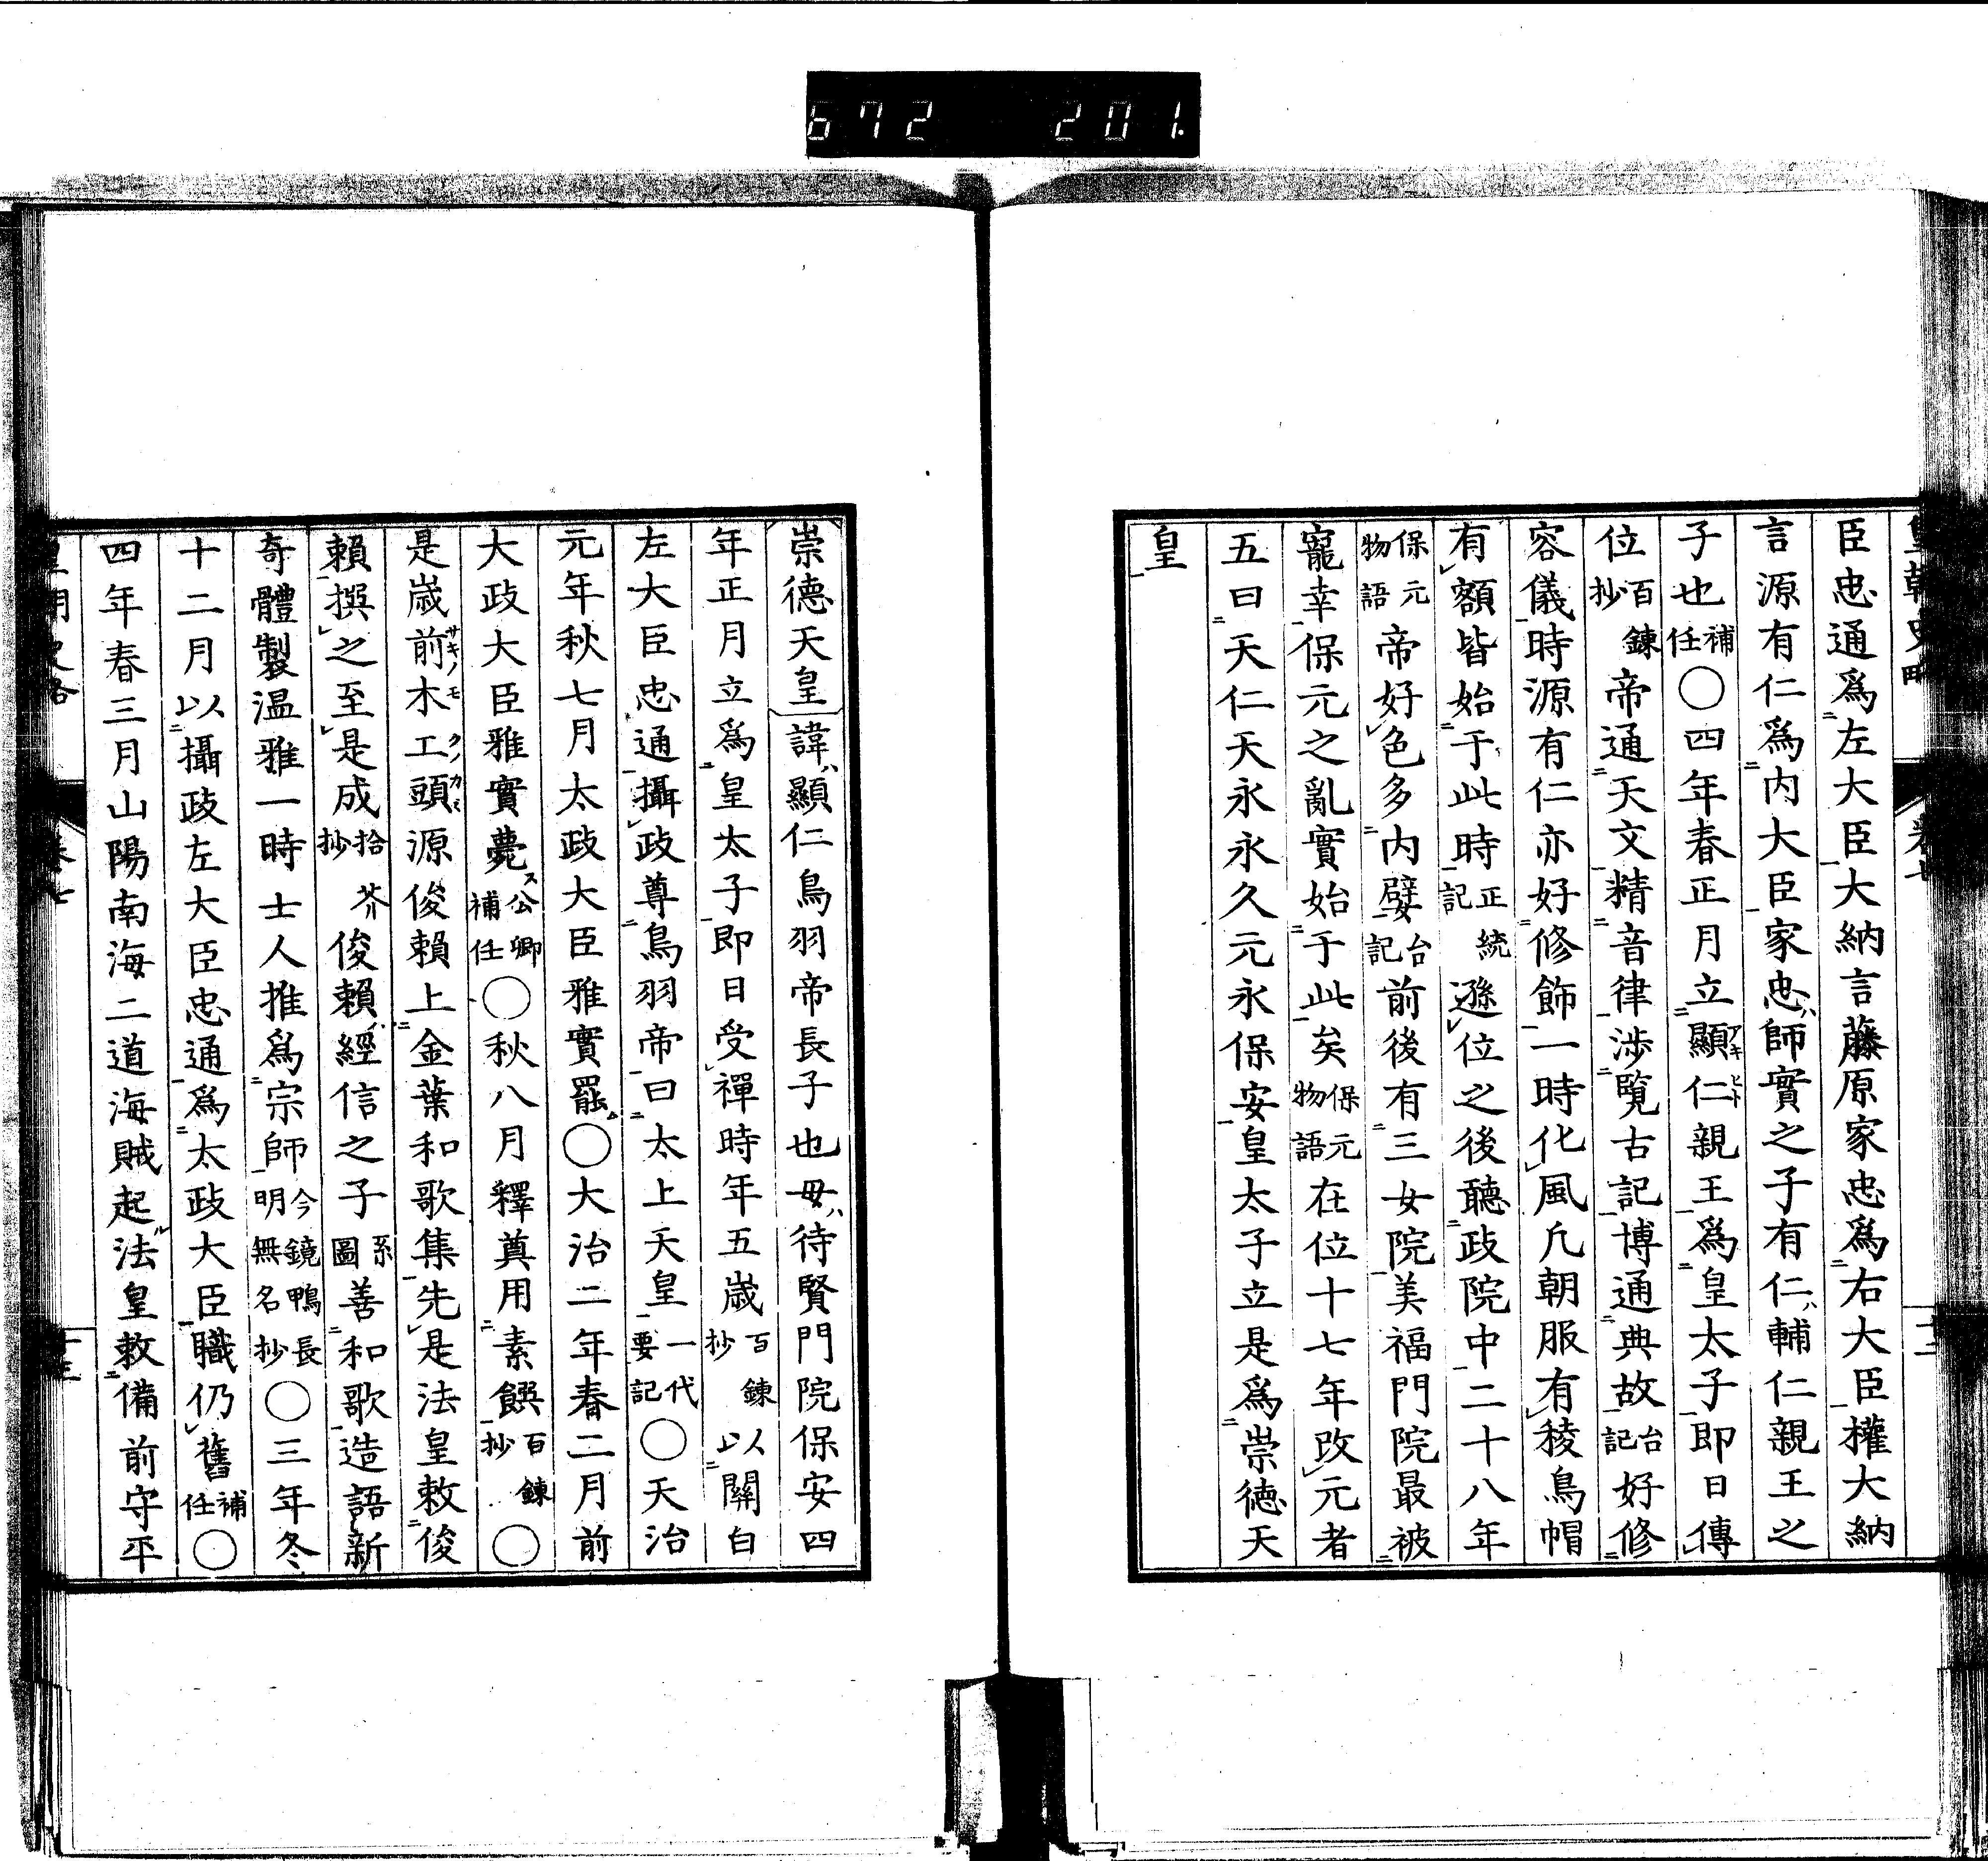 672 201.
皇朝史略 卷七 十二
臣忠通爲左大臣大納言藤原家忠爲右大臣權大納
言源有仁爲内大臣家忠師實之子有仁輔仁親王之
子也補任〇四年春正月立顯仁親王爲皇太子即日傳
位百鍊抄帝通天文精音律渉覧古記博通典故台記好修
容儀時源有仁亦好修飾一時化風凡朝服有稜烏帽
有額皆始于此時正統記遜位之後聽政院中二十八年
保元物語帝好色多内嬖台記前後有三女院美福門院最被
寵幸保元之亂實始于此矣保元物語在位十七年改元者
五曰天仁天永永久元永保安皇太子立是爲崇德天
皇
崇德天皇諱顯仁鳥羽帝長子也母待賢門院保安四
年正月立爲皇太子即日受禪時年五歳百鍊抄以關白
左大臣忠通攝政尊鳥羽帝曰太上天皇一代要記〇天治
元年秋七月太政大臣雅實罷〇大治二年春二月前
大政大臣雅實薨公卿補任〇秋八月釋奠用素饌百鍊抄〇
是歳前木工頭源俊賴上金葉和歌集先是法皇敕俊
賴撰之至是成拾芥抄俊賴經信之子系圖善和歌造語新
奇體製温雅一時士人推爲宗師今鏡鴨長明無名抄〇三年冬
十二月以攝政左大臣忠通爲太政大臣職仍舊補任〇
四年春三月山陽南海二道海賊起法皇敕備前守平